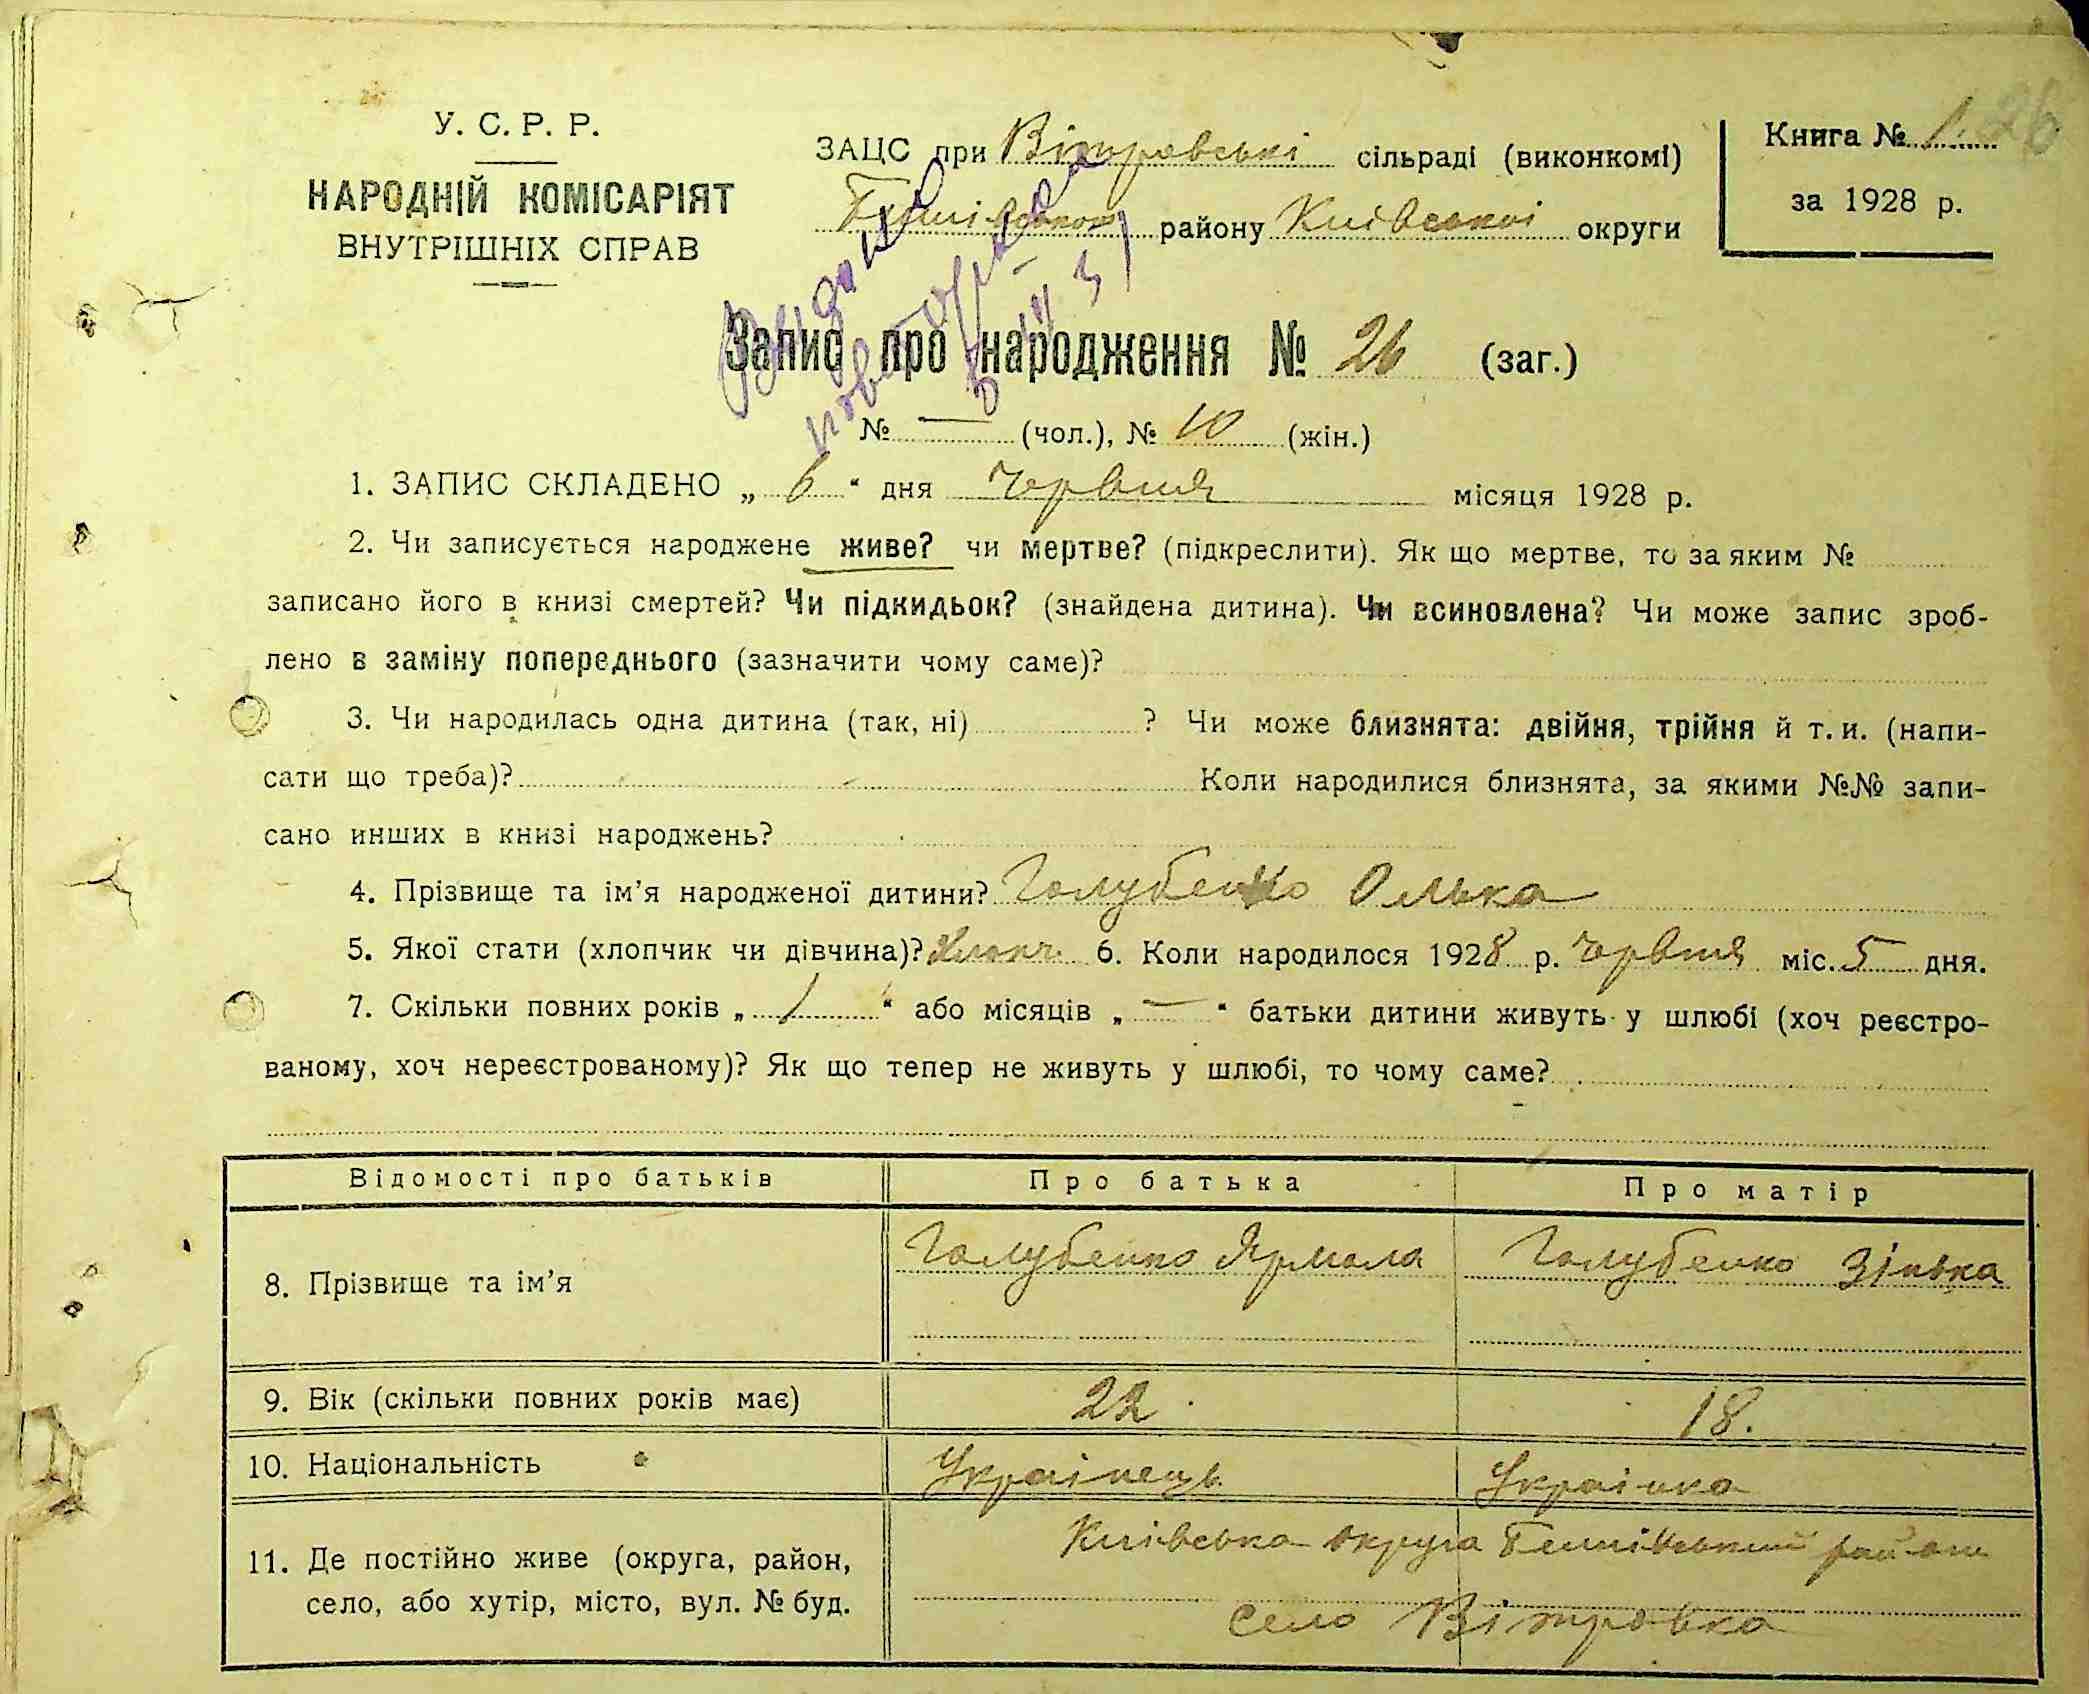 26
У. С. Р. Р.
НАРОДНІЙ КОМІСАРІЯТ
ВНУТРІШНІХ СПРАВ
ЗАЦС при Вітровські сільраді (виконкомі)
району Київської округи
Книга № 1.
за 1928 р.
Видано
повторно
31
Запис про народження № 26 (заг.)
№ — (чол.), № 10 (жін.)
1. ЗАПИС СКЛАДЕНО „ 6 “ дня червня місяця 1928 р.
2. Чи записується народжене живе? чи мертве? (підкреслити). Як що мертве, то за яким №
записано його в книзі смертей? Чи підкидьок? (знайдена дитина). Чи всиновлена? Чи може запис зроб-
лено в заміну попереднього (зазначити чому саме)?
3. Чи народилась одна дитина (так, ні) ? Чи може близнята: двійня, трійня й т. и. (напи-
сати що треба)? Коли народилися близнята, за якими №№ запи-
сано инших в книзі народжень?
4. Прізвище та ім’я народженої дитини? Голубенко Олька
5. Якої стати (хлопчик чи дівчина)? Хлопч. 6. Коли народилося 1928 р. червня міс. 5 дня.
7. Скільки повних років „ 1 “ або місяців „ — “ батьки дитини живуть у шлюбі (хоч реєстро-
ваному, хоч нереєстрованому)? Як що тепер не живуть у шлюбі, то чому саме?
Відомості про батьків Про батька Про матір
8. Прізвище та ім’я Голубенко Ярмола Голубенко Зінька
9. Вік (скільки повних років має) 22. 18.
10. Національність Українець Українка
11. Де постійно живе (округа, район, Київська округа район
село, або хутір, місто, вул. № буд. село Вітровка